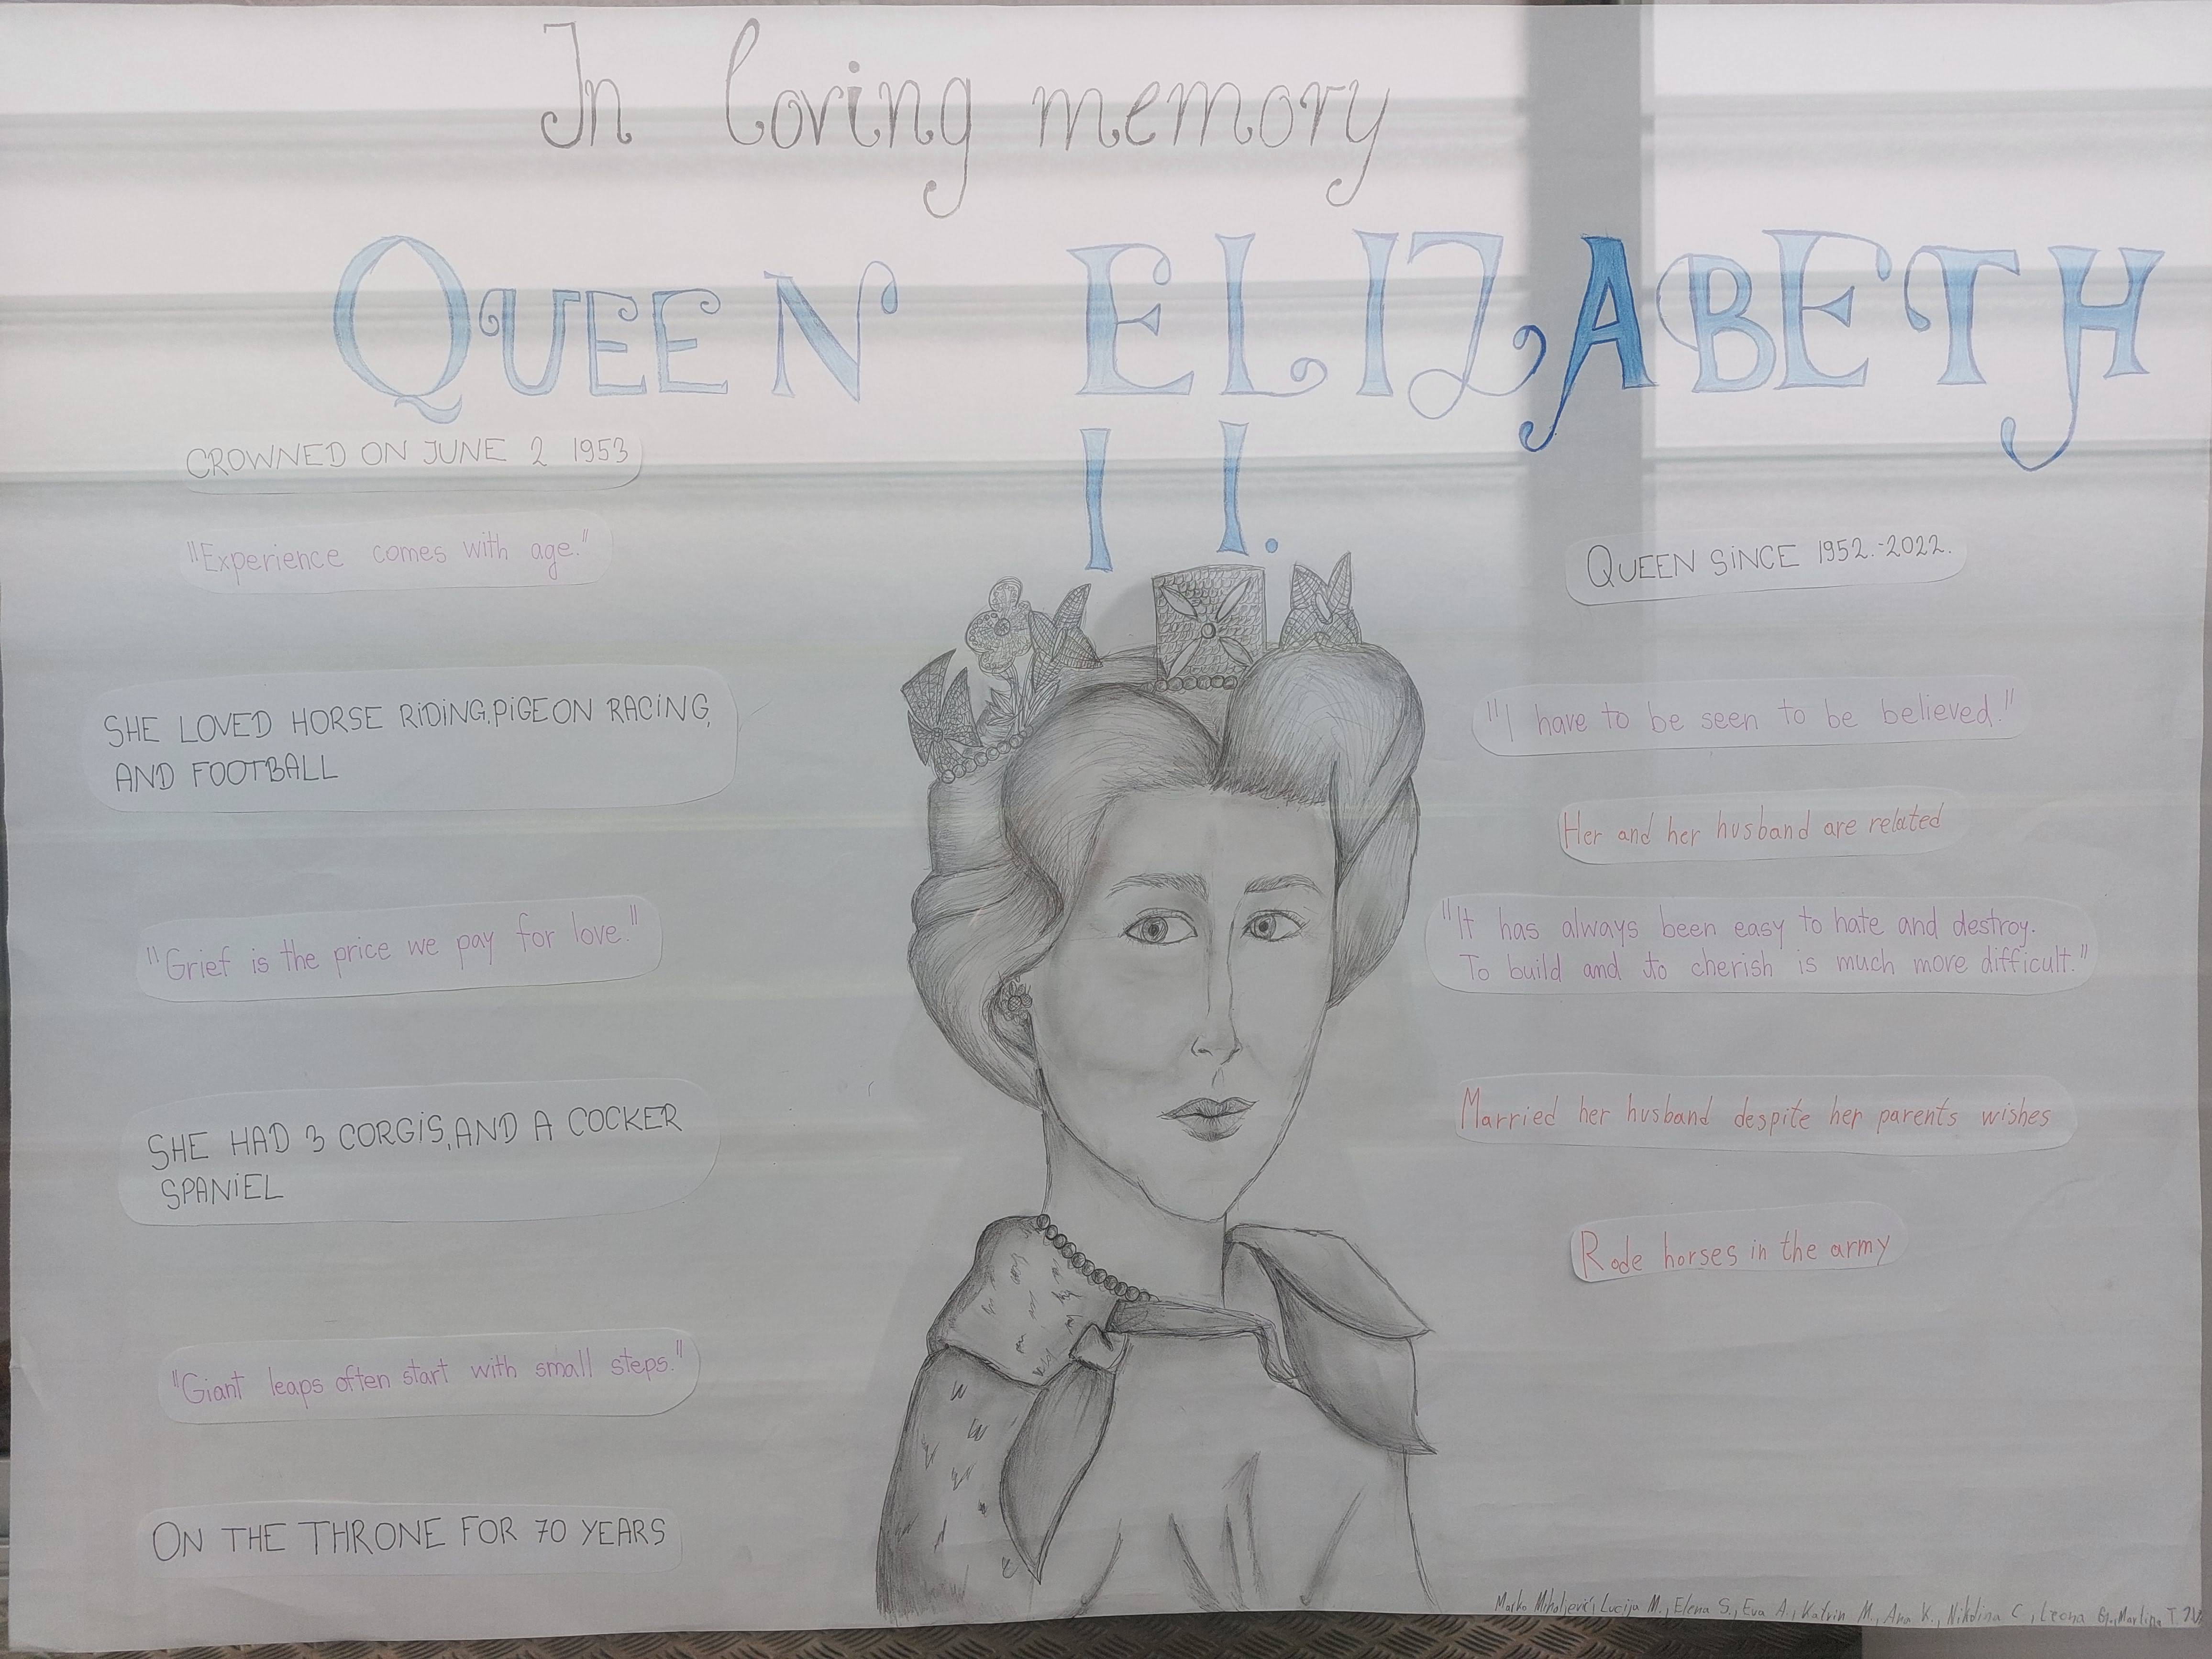 In loving memory
QUEEN ELIZABETH
II.
CROWNED ON JUNE 2 1953
"Experience comes with age."
SHE LOVED HORSE RIDING, PIGEON RACING,
AND FOOTBALL
"Grief is the price we pay for love."
SHE HAD 3 CORGIS, AND A COCKER
SPANIEL
"Giant leaps often start with small steps."
ON THE THRONE FOR 70 YEARS
QUEEN SINCE 1952.-2022.
"I have to be seen to be believed."
Her and her husband are related
"It has always been easy to hate and destroy.
To build and to cherish is much more difficult."
Married her husband despite her parents wishes
Rode horses in the army
Marko Mihaljević, Lucija M., Elena S., Eva A., Katrin M., Ana K., Nikolina C., Leona Gr., Martina T.